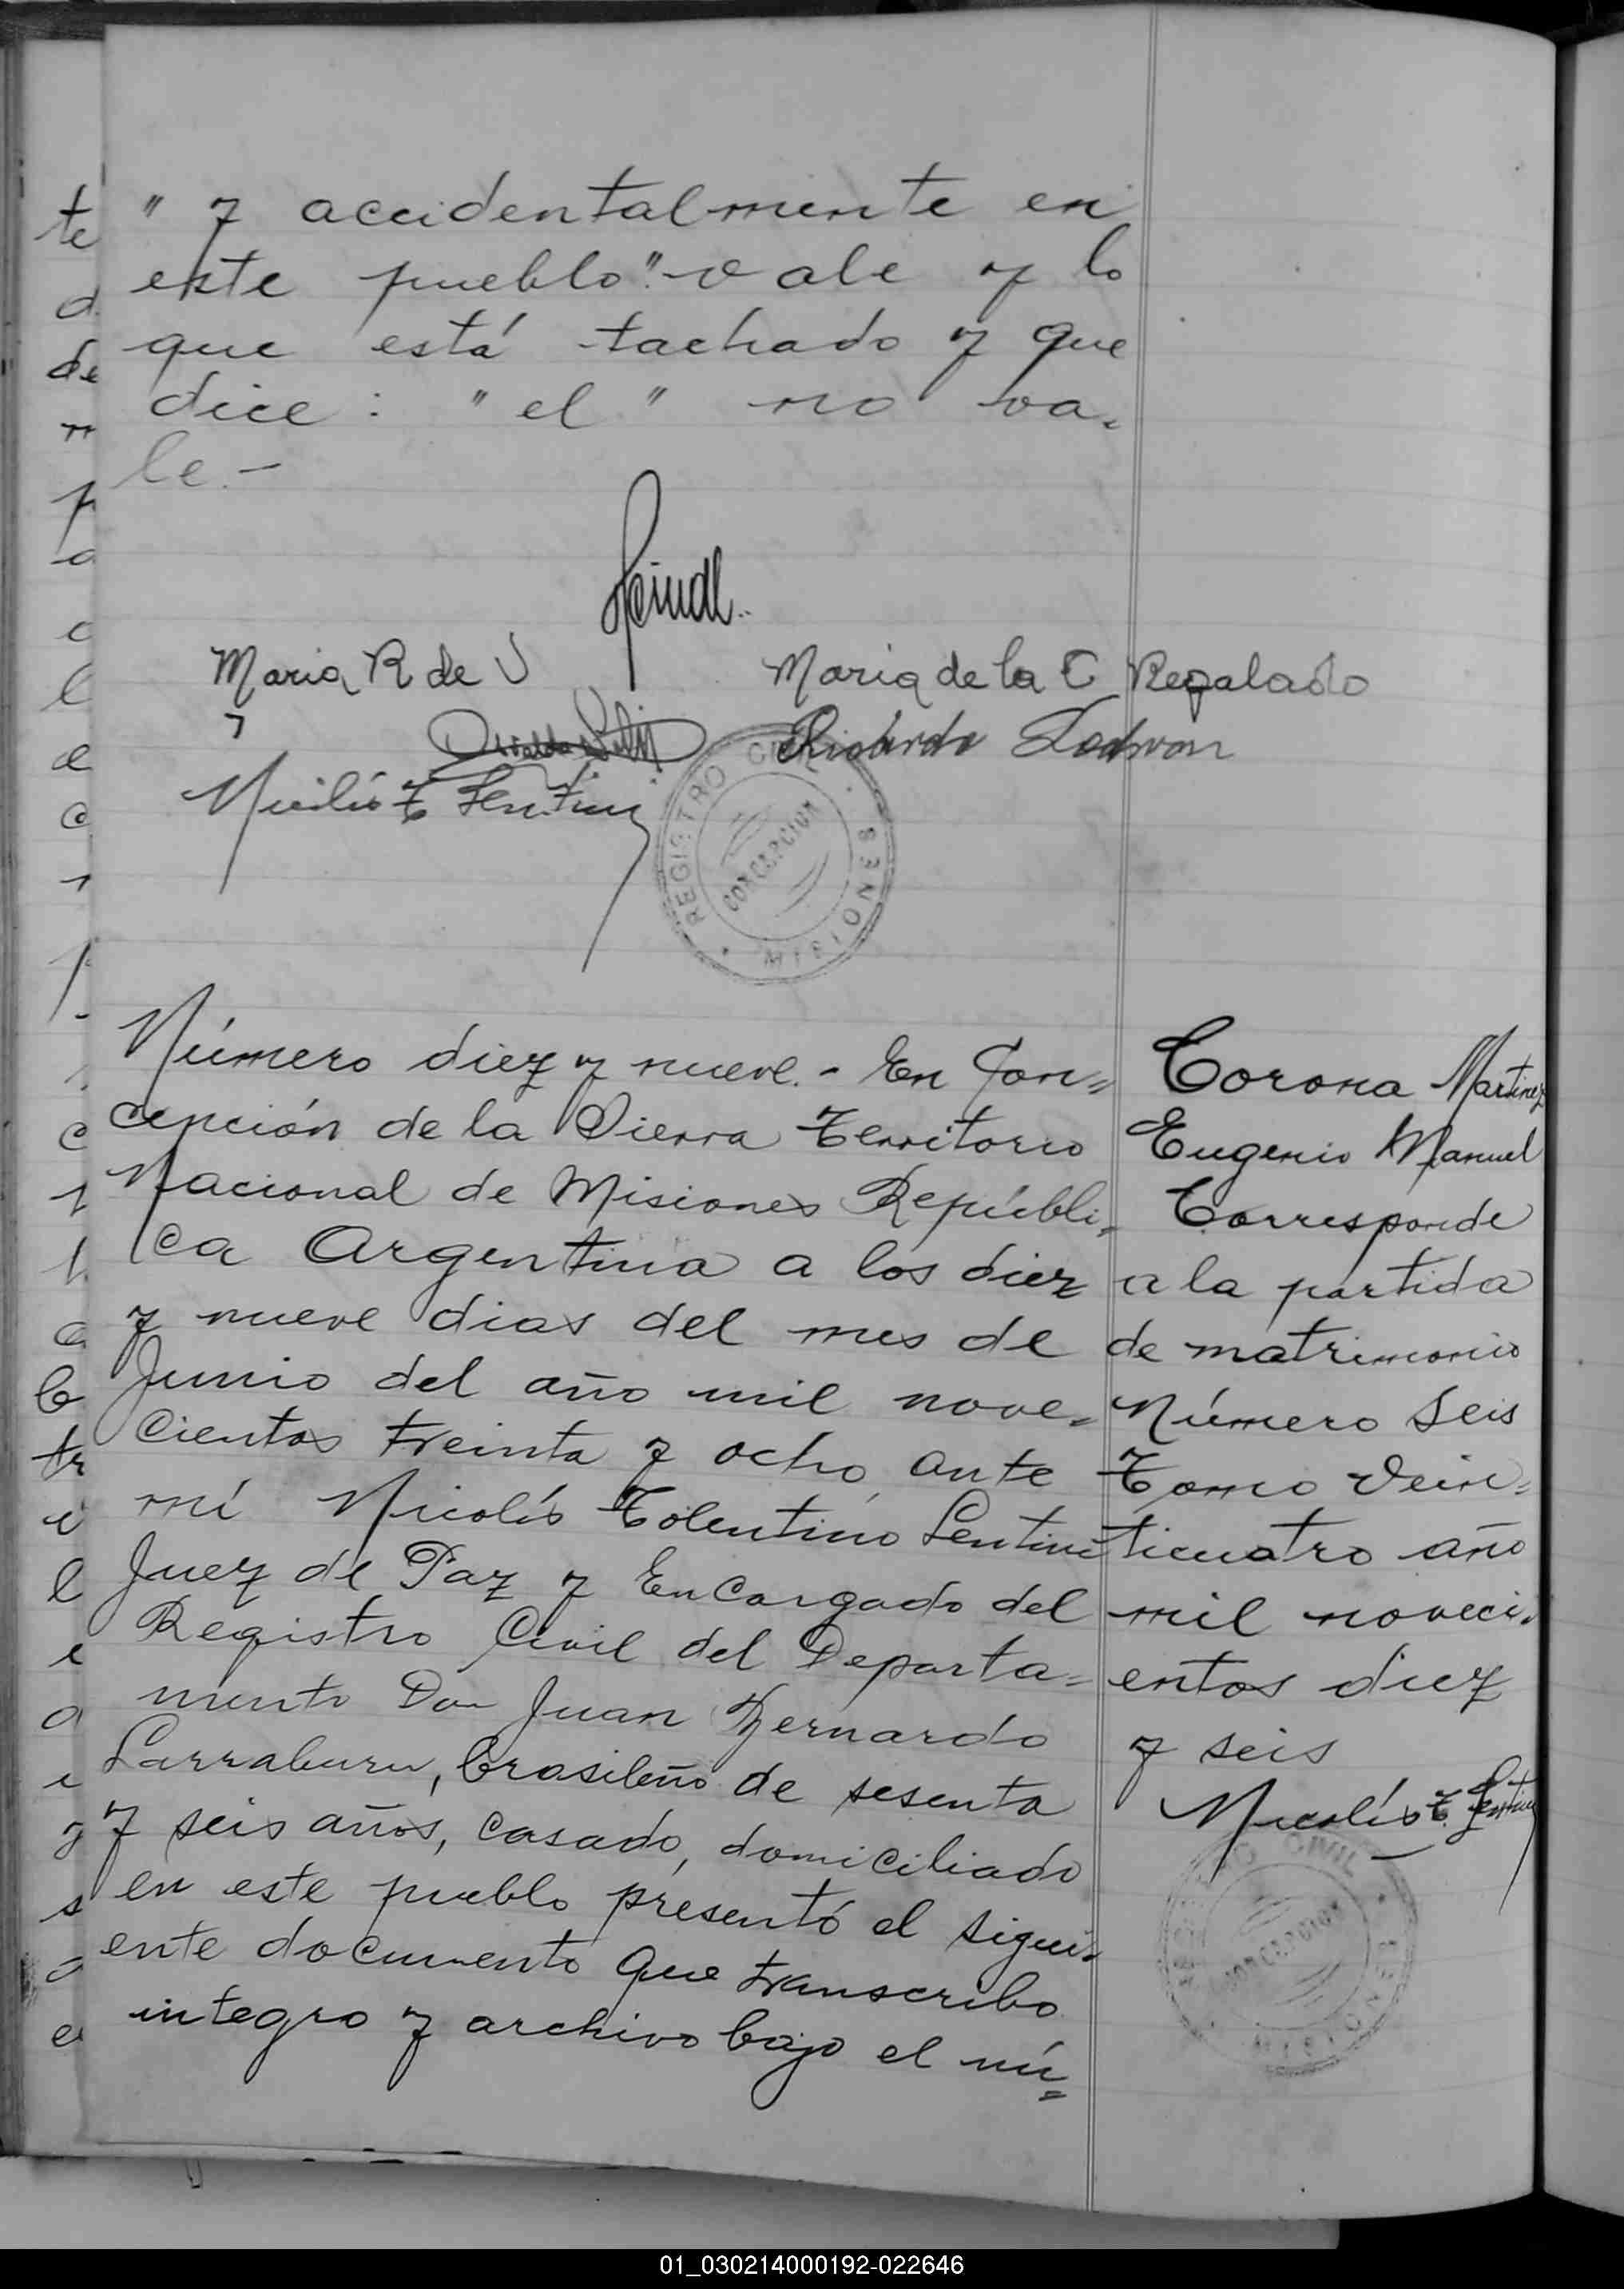 " y accidentalmente en
este pueblo". vale y lo
que está tachado y que
dice: "el" no va=
le.-
Maria R de V
Maria de la C Regalado
Ricardo
Nicolás T Sentini
REGISTRO CIVIL
CONCEPCION
MISIONES
Número diez y nueve.- En Con=
cepción de la Sierra Territorio
Nacional de Misiones Repúbli=
ca Argentina a los diez
y nueve dias del mes de
Junio del año mil nove=
cientos treinta y ocho, ante
mí Nicolás Tolentino Sentini
Juez de Paz y Encargado del
Registro Civil del Departa=
mento Don Juan Bernardo
Larraburu, brasileño de sesenta
y seis años, casado, domiciliado
en este pueblo presentó el sigui=
ente documento que transcribo
integro y archivo bajo el nú=
Corona Martinez
Eugenio Manuel
Corresponde
a la partida
de matrimonio
Número seis
Tomo Vein=
ticuatro año
mil noveci=
entos diez
y seis
Nicolás T. Sentini
CIVIL
CONCEPCION
MISIONES
01_030214000192-022646